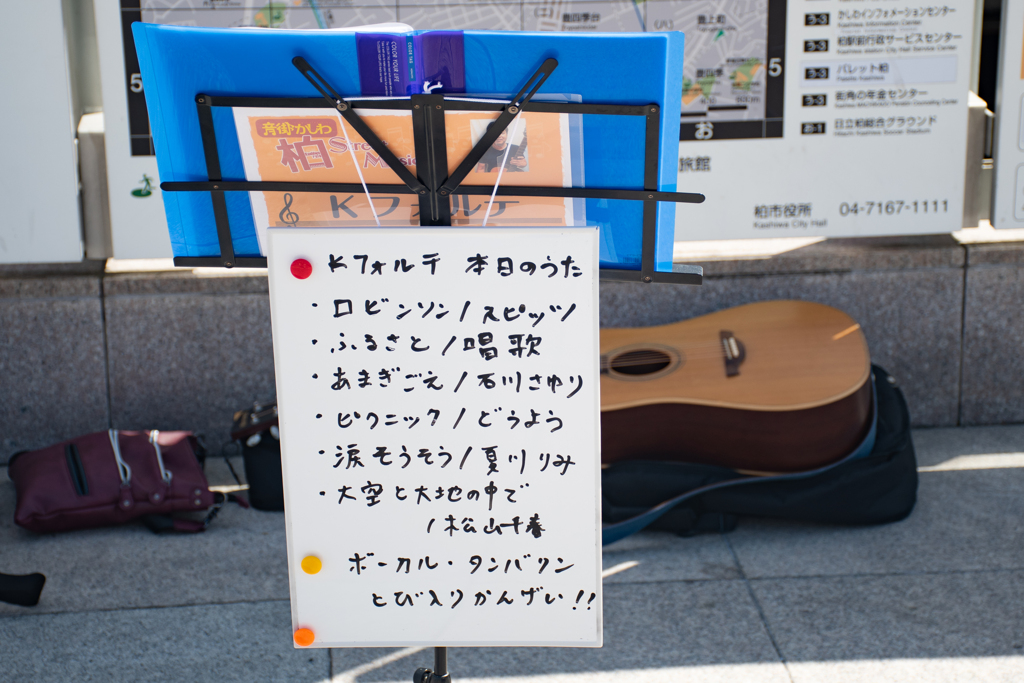 音街かしわ
柏
Street
Music
Kフォルテ
COLOR YOUR LIFE
5
5
お
う-3 かしわインフォメーションセンター
Kashiwa Information Center
う-3 柏駅前行政サービスセンター
う-3 パレット柏
Palette Kashiwa
う-3 街角の年金センター
お-1 日立柏総合グラウンド
Hitachi Kashiwa Soccer Stadium
旅館
柏市役所 04-7167-1111
Kashiwa City Hall
Kフォルテ 本日のうた
・ロビンソン/スピッツ
・ふるさと/唱歌
・あまぎごえ/石川さゆり
・ピクニック/どうよう
・涙そうそう/夏川りみ
・大空と大地の中で
/松山千春
ボーカル・タンバリン
とび入りかんげい!!